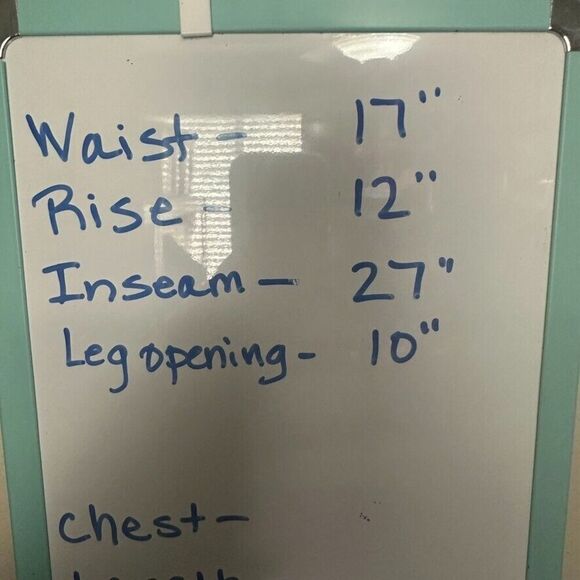 Waist - 17"
Rise - 12"
Inseam - 27"
Leg opening - 10"
Chest -